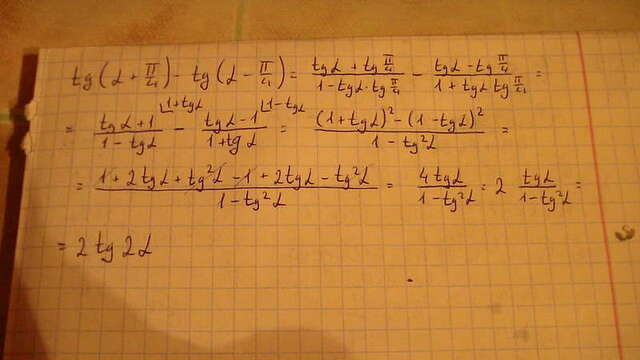 tg(α + π/4) - tg(α - π/4) = (tgα + tg π/4)/(1 - tgα · tg π/4) - (tgα - tg π/4)/(1 + tgα tg π/4) =
= (tgα + 1)/(1 - tgα) ⌊1+tgα - (tgα - 1)/(1 + tgα) ⌊1-tgα = ((1 + tgα)² - (1 - tgα)²)/(1 - tg²α) =
= (1 + 2tgα + tg²α - 1 + 2tgα - tg²α)/(1 - tg²α) = 4tgα/(1 - tg²α) = 2 tgα/(1 - tg²α) =
= 2 tg 2α